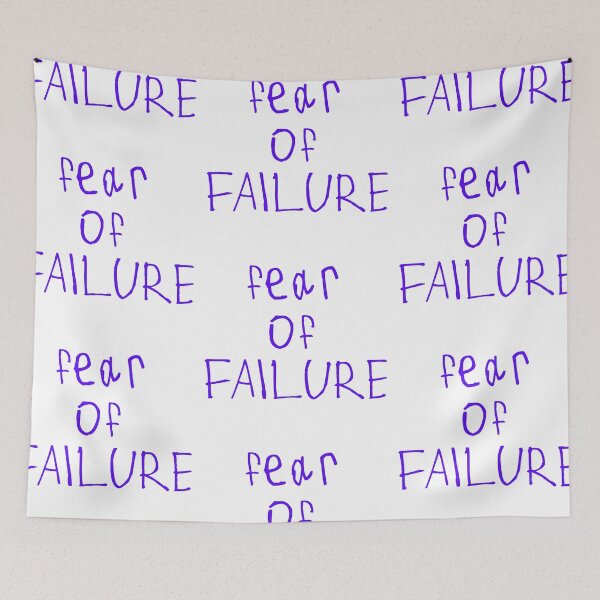 FAILURE
fear
Of
FAILURE
FAILURE
fear
Of
FAILURE
fear
Of
FAILURE
fear
Of
FAILURE
fear
Of
FAILURE
fear
Of
FAILURE
fear
Of